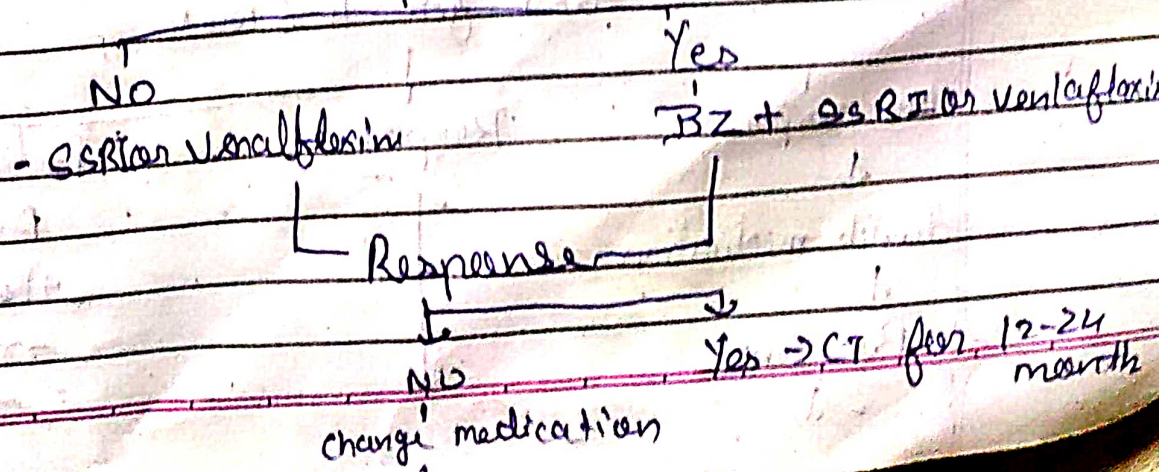 No
Yes
- SSRI or Venalflexim
BZ + SSRI or Venlaflaxi
Response
No
Yes → CT for 12-24
month
change medication